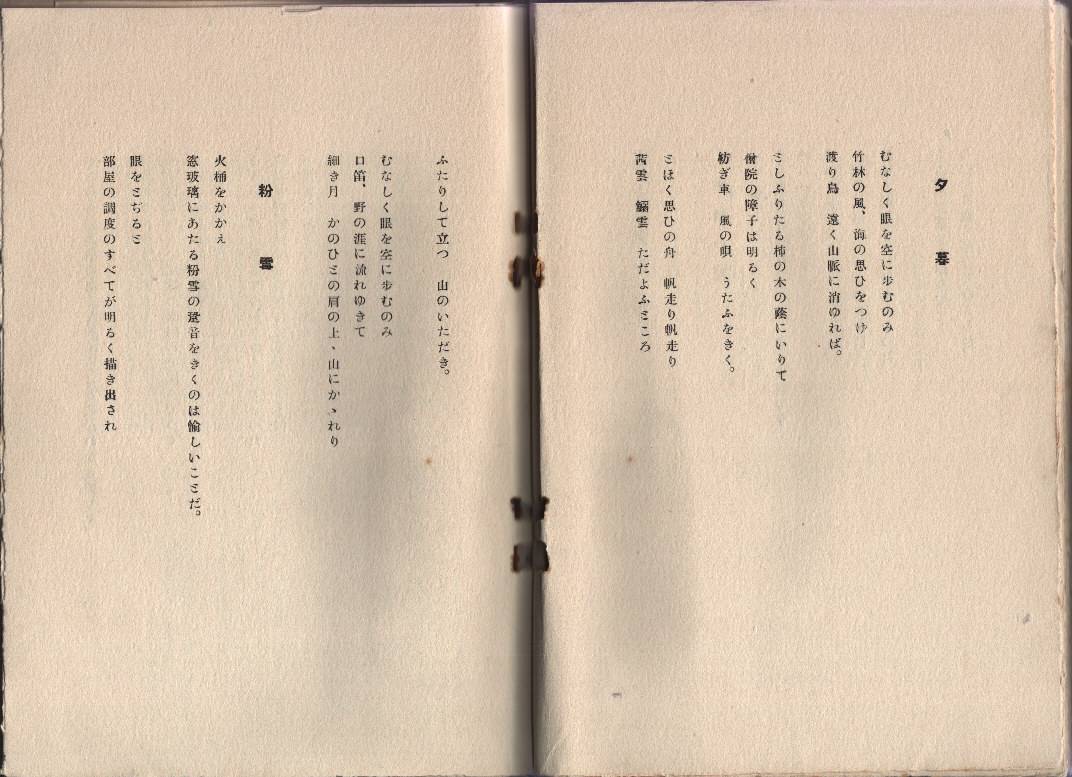 夕暮
むなしく眼を空に歩むのみ
竹林の風、海の思ひをつけ
渡り鳥　遠く山脈に消ゆれば。
としふりたる柿の木の蔭にいりて
僧院の障子は明るく
紡ぎ車　風の唄　うたふをきく。
とほく思ひの舟　帆走り帆走り
茜雲　鰯雲　ただよふところ
ふたりして立つ　山のいただき。
むなしく眼を空に歩むのみ
口笛、野の涯に流れゆきて
細き月　かのひとの肩の上、山にかゝれり
粉雪
火桶をかかえ
窓玻璃にあたる粉雪の跫音をきくのは愉しいことだ。
眼をとぢると
部屋の調度のすべてが明るく描き出され